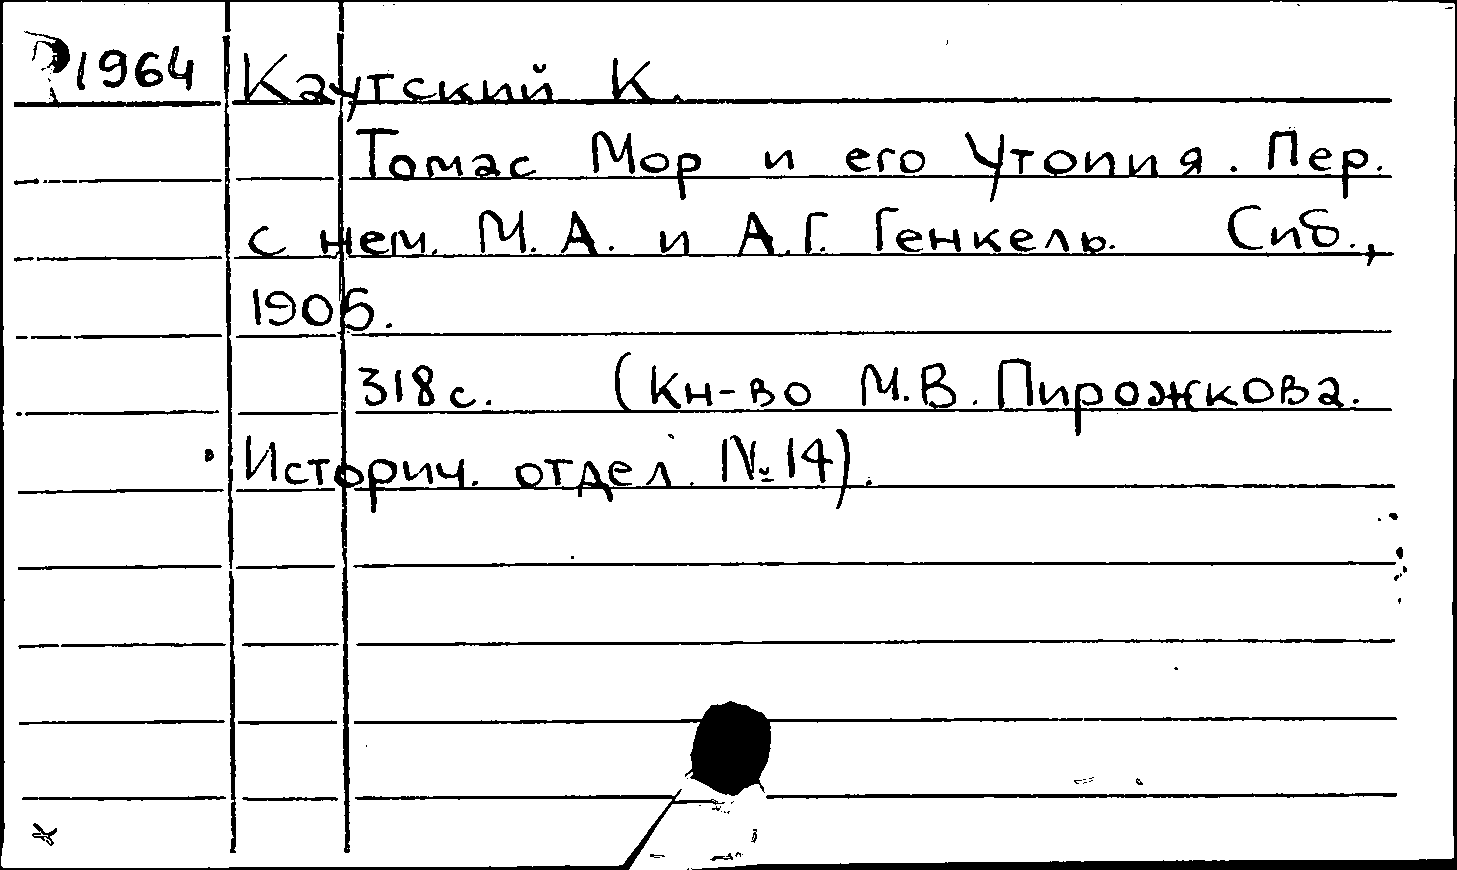 1964 Каутский К.
Томас Мор и его Утопия. Пер.
с нем. М.А. и А.Г. Генкель. Спб.,
1905.
318с. (Кн-во М.В. Пирожкова.
Историч. отдел. №14).